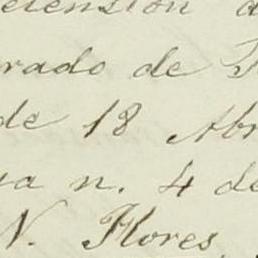 detension d
rado de F
de 18 Abr
na n. 4 de
N. Flores